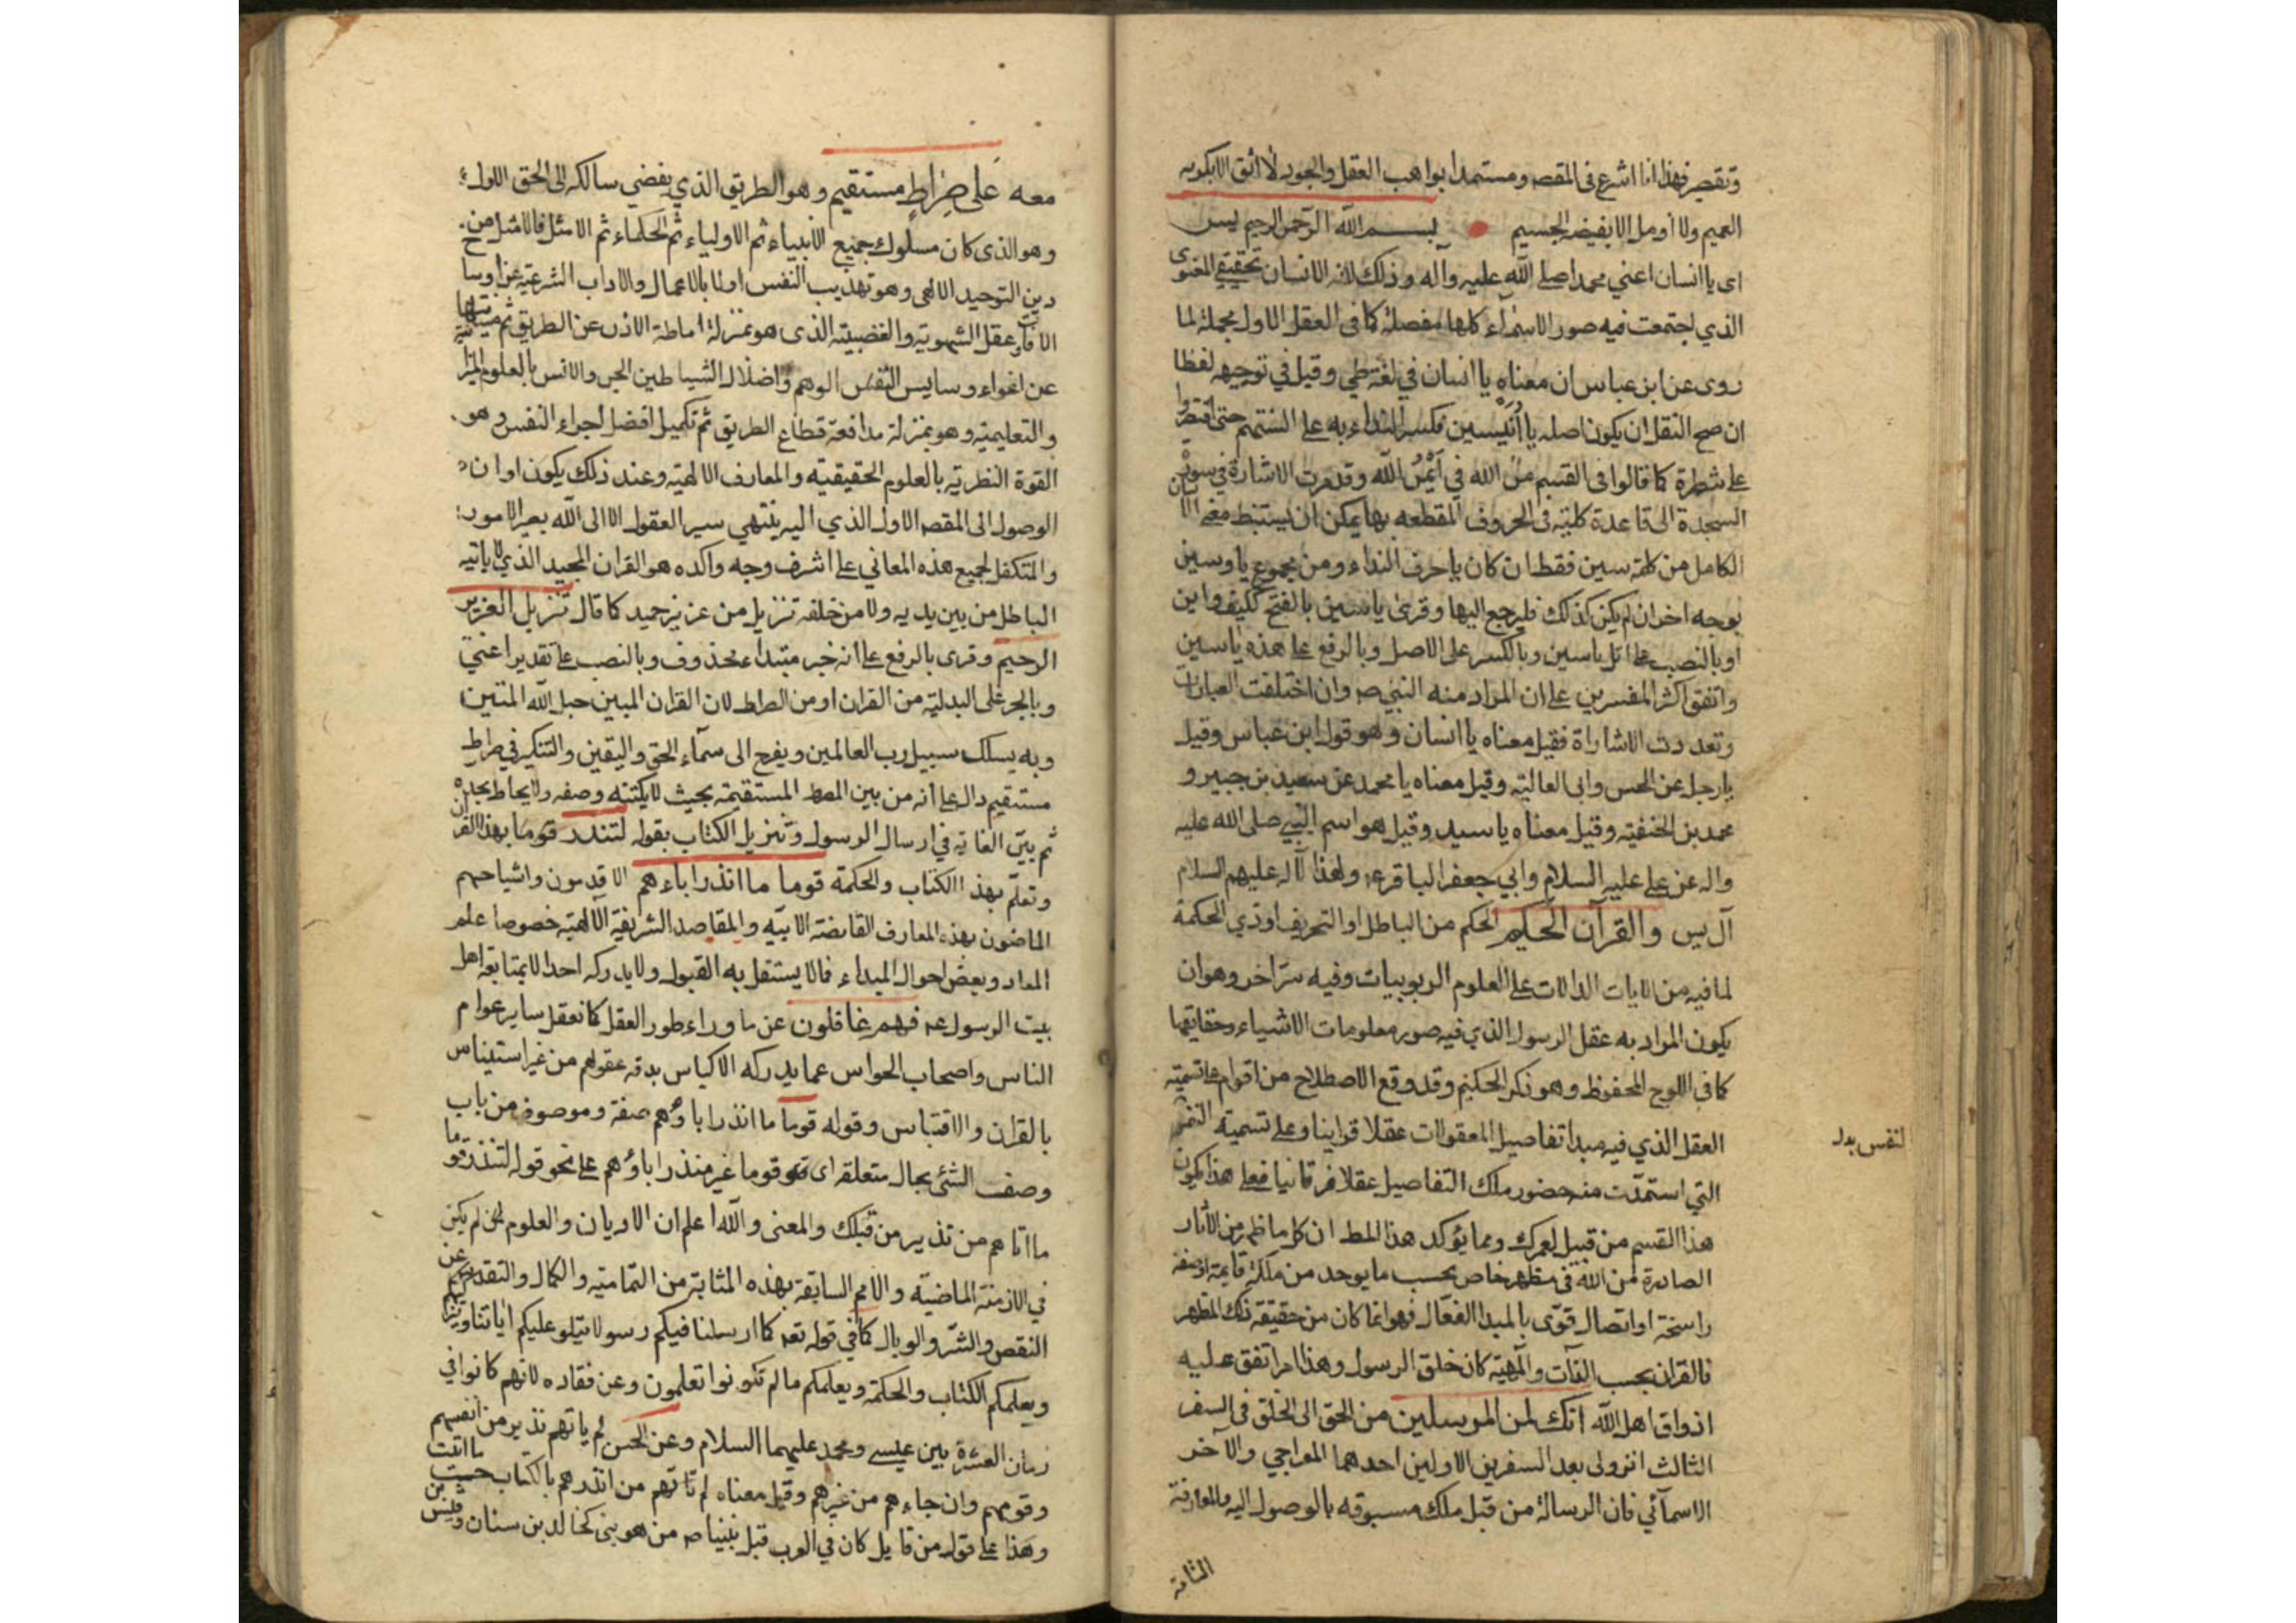 وتقصير فهذا انا اشرع في المقصد ومستمدا بواهب العقل والجود لا اثق الا بكرمه
العميم ولا أومل الا بفيضه الجسيم بسم الله الرحمن الرحيم يس
اى يا انسان اعني محمدا صلى الله عليه وآله وذلك لانه الانسان الحقيقي المعنوى
الذي اجتمعت فيه صور الاسماء كلها مفصلة كما في العقل الاول مجملة لما
روى عن ابن عباس ان معناه يا انسان في لغة طي وقيل في توجيهه لفظا
ان صح النقل ان يكون اصله يا أنيسين فكسر النداء به على السنتهم حتى اقتصروا
على شطره كما قالوا في القسم من الله في أيمن الله وقد مرت الاشارة في سورة
السجدة الى قاعدة كلية في الحروف المقطعة بها يمكن ان يستنبط معنى الانسان
الكامل من كلمة سين فقط ان كان يا حرف النداء ومن مجموع يا وسين
بوجه اخر ان لم يكن كذلك فليرجع اليها وقرئ ياسين بالفتح ككيف واين
او بالنصب على اتل ياسين وبالكسر على الاصل وبالرفع على هذه ياسين
واتفق اكثر المفسرين على ان المراد منه النبي ص وان اختلفت العبارات
وتعددت الاشاراة فقيل معناه يا انسان وهو قول ابن عباس وقيل
يا رجل عن الحسن وابى العالية وقيل معناه يا محمد عن سعيد بن جبير و
محمد بن الحنفية وقيل معناه يا سيد وقيل هو اسم النبي صلى الله عليه
واله عن علي عليه السلام وابي جعفر الباقر ع ولهذا لآله عليهم السلام
آل يس والقرآن الحكيم الحكم من الباطل او التحريف او ذي الحكمة
لما فيه من الايات الدالات على العلوم الربوبيات وفيه سر اخر وهو ان
يكون المراد به عقل الرسول الذي فيه صور معلومات الاشياء وحقايقها
كما في اللوح المحفوظ وهو ذكر الحكيم وقد وقع الاصطلاح من اقوام على تسمية
العقل الذي فيه مبدا تفاصيل المعقولات عقلا قرانيا وعلى تسمية النفس
لنفس بدل
التي استمدت منه حضور تلك التفاصيل عقلا فرقانيا فعلى هذا يكون
هذا القسم من قبيل لعمرك ومما يؤكد هذا المط ان كل ما ظهر من الآثار
الصادرة من الله في مظهر خاص بحسب ما يوجد من ملكة قايمة او صفة
راسخة او اتصال قوى بالمبدا الفعال فهو انما كان من حقيقة ذلك المظهر
فالقران بحسب الذات والمهية كان خلق الرسول وهذا مما اتفق عليه
اذواق اهل الله انك لمن المرسلين من الحق الى الخلق في السفر
الثالث النزولى بعد السفرين الاولين احدهما المعراجي والآخر
الاسمآئي فان الرسالة من قبل ملك مسبوقه بالوصول اليه والمعارفة
الثامة
معه على صراط مستقيم وهو الطريق الذي يفضي سالكه الى الحق الاول
وهو الذى كان مسلوك جميع الانبياء ثم الاولياء ثم الحكماء ثم الامثل فالامثل من
دين التوحيد الالهى وهو تهذيب النفس اولا بالاعمال والاداب الشرعية عن اوساخ
الافات عقل الشهوية والغضبية الذى هو بمنزلة اماطة الاذى عن الطريق ثم
عن اغواء وسايس النفس الوهم واضلال الشياطين الجن والانس بالعلوم
والتعليمية وهو بمنزلة مدافعة قطاع الطريق ثم تكميل افضل اجزاء النفس وهو
القوة النظرية بالعلوم الحقيقية والمعارف الالهية وعند ذلك يكون اوان
الوصول الى المقصد الاول الذي اليه ينتهي سير العقول الا الى الله يصير الامور
والمتكفل لجميع هذه المعاني على اشرف وجه واكده هو القران المجيد الذي لا ياتيه
الباطل من بين يديه ولا من خلفه تنزيل من عزيز حميد كما قال تنزيل العزيز
الرحيم وقرى بالرفع على انه خبر مبتداء محذوف وبالنصب على تقدير اعني
وبالجر على البدلية من القران او من الصراط لان القران المبين حبل الله المتين
وبه يسلك سبيل رب العالمين ويعرج الى سماء الحق واليقين والتنكير في صراط
مستقيم دال على انه من بين الصرط المستقيمة بحيث لا يكتنه وصفه ولا يحاط بحده
ثم بين الغاية في ارسال الرسول وتنزيل الكتاب بقوله لتنذر قوما بهذا القران
وتعلم بهذا الكتاب والحكمة قوما ما انذر اباءهم الاقدمون واشياخهم
الماضون بهذه المعارف الفايضة الابية والمقاصد الشريفة الآلهية خصوصا علم
المعاد وبعض احوال المبداء فما لا يستقل به العقول ولا يدركه احد الا بمتابعة اهل
بيت الرسول ع فهم غافلون عن ما وراء طور العقل كما نعقل ساير عوام
الناس واصحاب الحواس عما يدركه الاكياس بدقة عقولهم من غير استيناس
بالقران والاقتباس وقوله قوما ما انذر اباؤهم صفة وموصوف من باب
وصف الشئ بحال متعلقه اى قوما غير منذر اباؤهم على نحو قوله لتنذر قوما
ما اتاهم من نذير من قبلك والمعنى والله اعلم ان الاديان والعلوم لم يكن
في الازمنة الماضية والامم السابقة بهذه المثابة من التمامية والكمال والتقدس عن
النقص والشر والوبال كما في قوله تعه كما ارسلنا فيكم رسولا يتلو عليكم اياتنا ويزكيكم
ويعلمكم الكتاب والحكمة ويعلمكم ما لم تكونوا تعلمون وعن قتاده لانهم كانوا في
زمان الفترة بين عيسى ومحمد عليهما السلام وعن الحسن لم ياتهم نذير من انفسهم
وقومهم وان جاءهم من غيرهم وقيل معناه لم تاتهم من انذرهم بالكتاب حسب ما اتيت
وهذا على قول من قايل كان في العرب قبل نبينا ص من هو نبي كخالد بن سنان وقيس بن